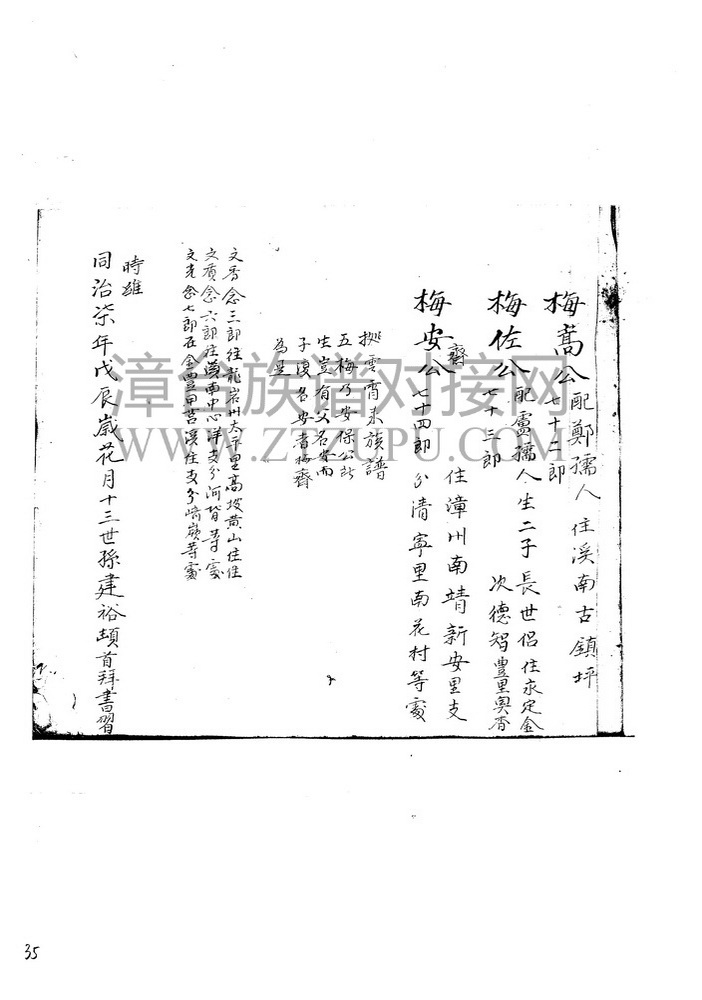 梅嵩公七十二郎
配鄭孺人 住溪南古鎮坪
梅佐公七十三郎
配盧孺人生二子 長世侶住永定金
次德智豊里奧杳
梅安公七十四郎
齋
住漳州南靖新安里支
分清寧里南花村等處
拠雲霄来族譜
五梅乃安保公所
生豈有父名安而
子復名安者梅齋
為是
文秀念三郎往龍岩州太平里高坡黄山住住
文質念六郎往漢車中心洋支分河背等處
文光念七郎在金豐里苦溪住支分崎嶺等處
時雄
同治柒年戊辰歲花月十三世孫建裕頓首拜書習
漳台族谱对接网
WWW.ZTZUPU.COM
35